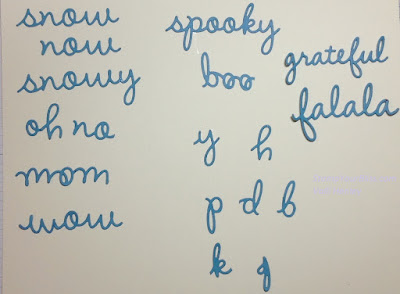 snow
now
snowy
oh no
mom
wow
spooky
boo
y h
p d b
k q
grateful
falala